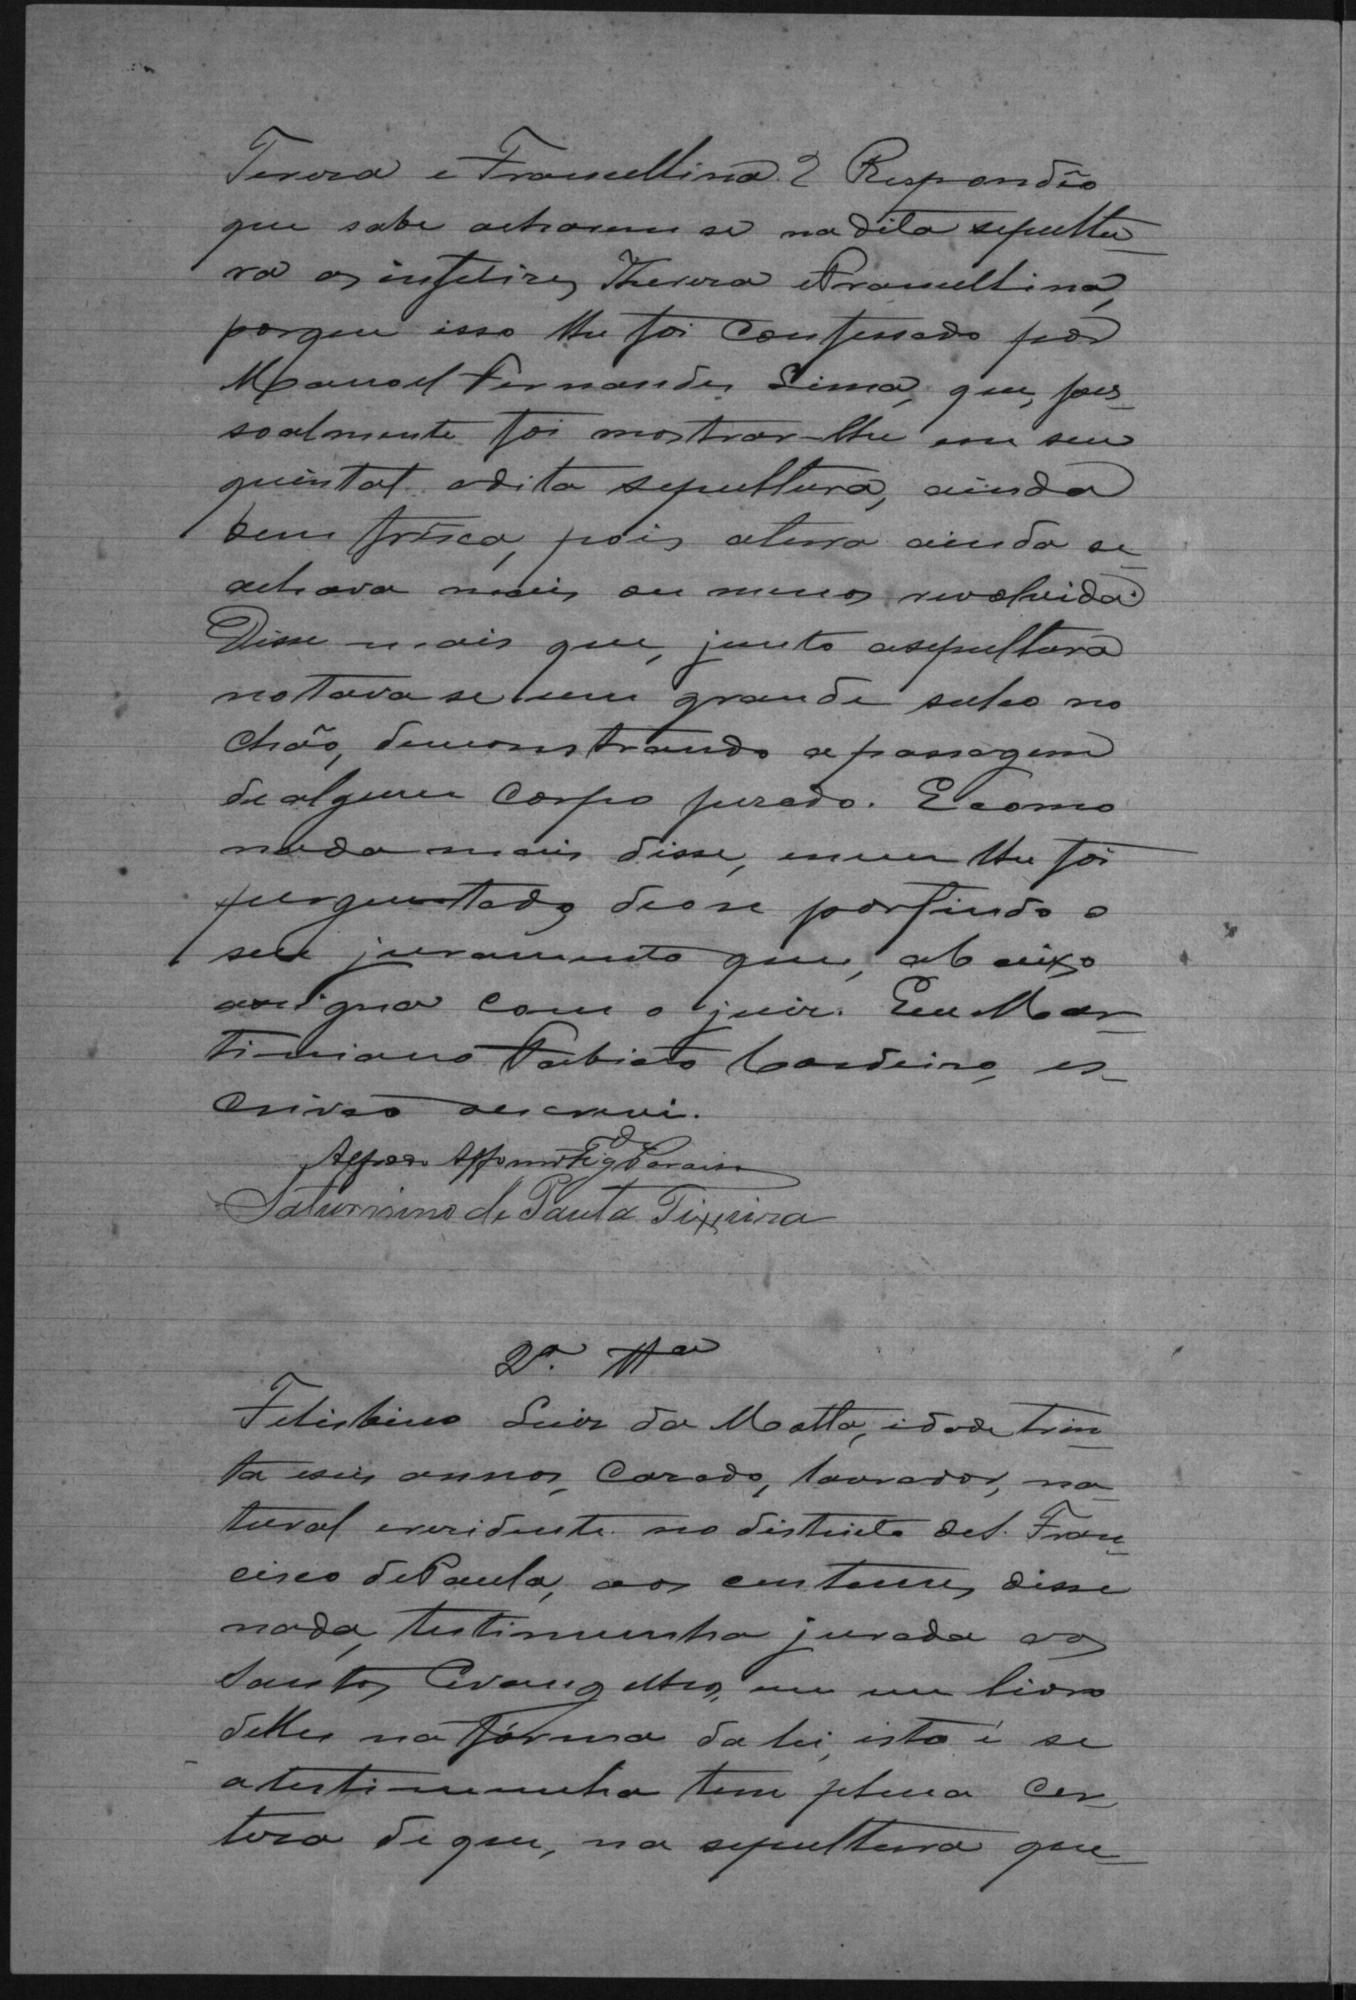 Tereza e Francellina? Respondêo
que sabe acharem se na dita sepultu-
ra as infelizes Thereza e Francellina,
porque isso lhe foi confessado por
Manoel Fernandes Lima, que, pes-
soalmente foi mostrar-lhe em seu
quintal a dita sepultura, ainda
bem frêsca, pois a terra ainda se
achava mais ou menos revolvida.
Disse mais que, junto a sepultura
notava se um grande sulco no
chão, demonstrando a passagem
de algum corpo pezado. E como
nada mais disse, nem lhe foi
perguntado, deo se por findo o
seu juramento que, abaixo
assigna com o juiz. Eu Mar-
timiano Fabiato Cordeiro, es-
crivão o escrevi.
Alfredo Affonso Fig de Paraiso
Saturnino de Paula Tixeira
2ª. Ttª
Felisbino Luiz da Matta, idade trin-
ta e seis annos, cazado, lavrador, na-
tural e rezidente no districto de S. Fran-
cisco de Paula, aos custumes disse
nada, testimunha jurada aos
Santos Evangelhos, em um livro
delles na fórma da lei, isto é se
a testimunha tem plena cer-
teza de que, na sepultura que-